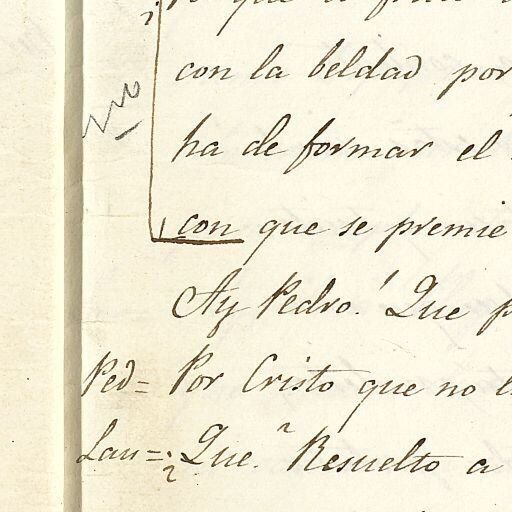 con la beldad por
no
ha de formar el
con que se premie
Ay Pedro! Que p
Ped= Por Cristo que no l
Lau=¿Que? Resuelto a